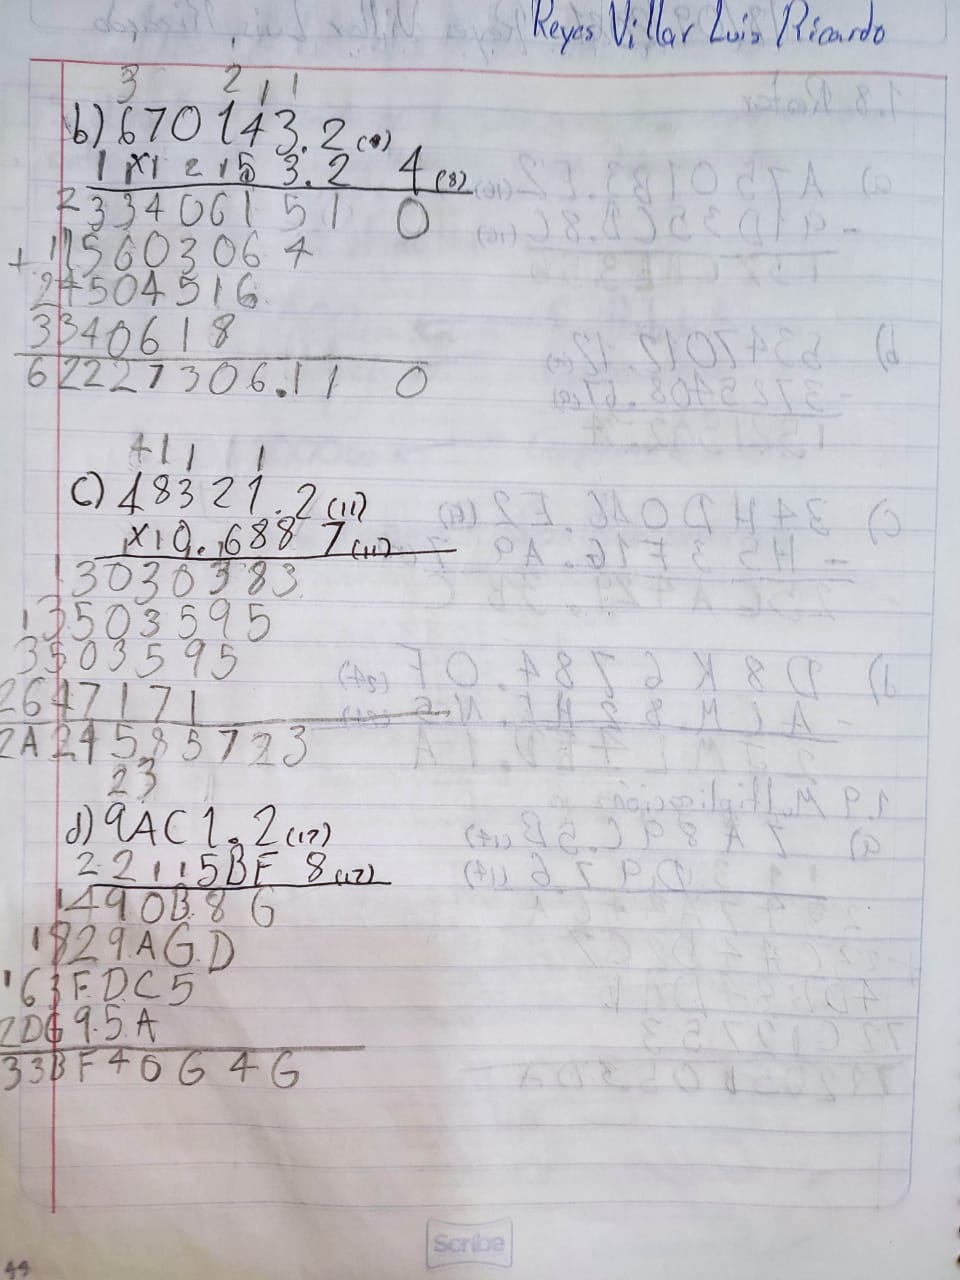 Reyes Villar Luis Ricardo
3 2 1 1
b) 670143.2 (8)
1 x1 2 15 3.2 4 (8)
23340615 1 0
+ 115603064
24504516
3340618
62227306.11 0
4 1 1 1
c) 48321.2 (11)
x10.6887 (11)
13030383
13503595
3503595
2647171
2A24585723
23
d) 9AC1.2 (17)
2 2 1 1 5BF 8 (17)
1490B8G
1829AGD
163FDC5
2DG95A
33BF40G4G
Scribe
44